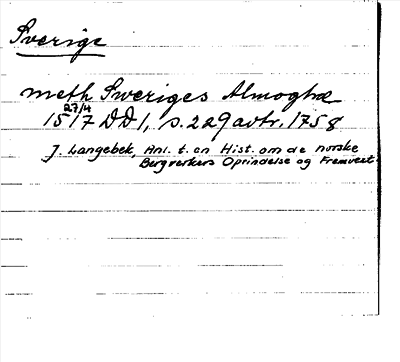 Sverige
meth Sweriges Almoghæ
15 27/4 /7 DD1, s. 229 avtr. 1758
J. Langebek, Anl. t. en Hist. om de norske
Bergverkers Oprindelse og Fremvext